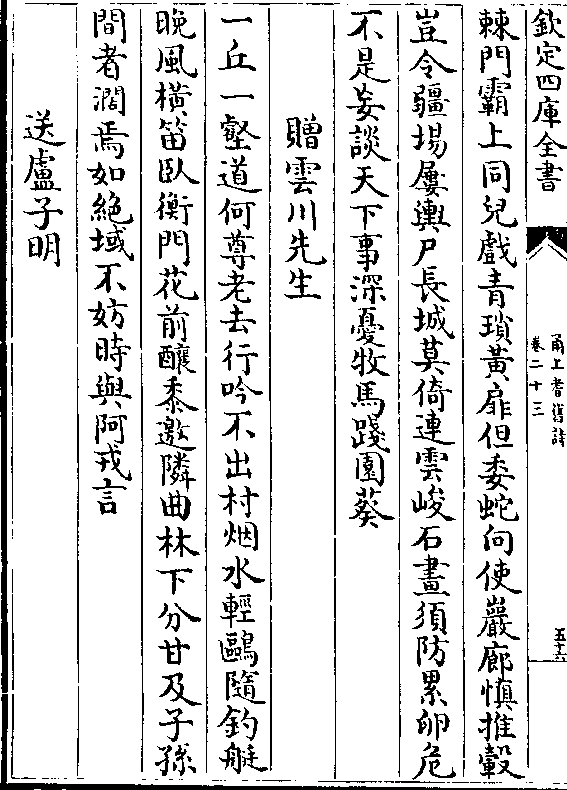 欽定四庫全書
甬上耆舊詩
卷二十三
五十六
棘門霸上同兒戲青瑣黃扉但委蛇向使巖廊慎推轂
豈令疆場屢輿尸長城莫倚連雲峻石畫須防累卵危
不是妄談天下事深憂牧馬踐園葵
贈雲川先生
一丘一壑道何尊老去行吟不出村烟水輕鷗隨釣艇
晩風橫笛臥衡門花前釀黍邀隣曲林下分甘及子孫
間者濶焉如絶域不妨時與阿戎言
送盧子明